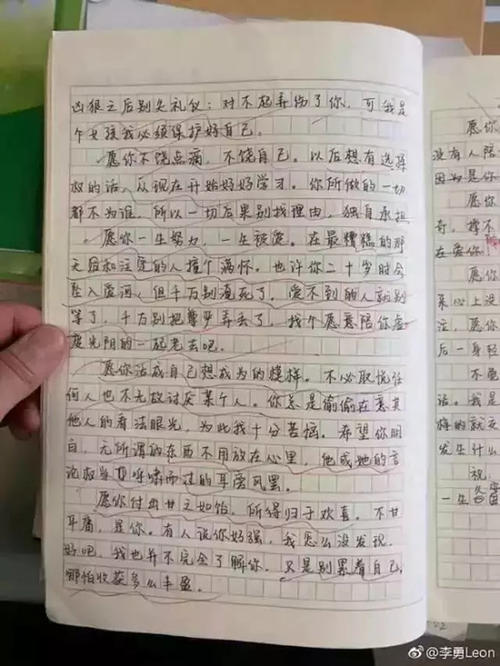 凶狠之后别失礼仪：对不起弄伤了你，可我是
个女孩我必须保护好自己。
愿你不饶点病，不饶自己。以后想有选择
权的话，从现在开始好好学习。你所做的一切
都不为谁，所以一切后果别找理由，独自承担。
愿你一生努力，一生被爱。在最糟糕的那
天后和注定的人撞个满怀。也许你二十岁时会
坠入爱河，但千万别淹死了，爱不到的人就别
等了，千万别把尊严弄丢了，找个愿意陪你虚
度光阴的一起老去吧。
愿你活成自己想成为的模样。不必取悦任
何人也不无故讨厌某个人。你总是偷偷在意其
他人的看法眼光，为此我十分苦恼。希望你明
白，无所谓的东西不用放在心里，他或她的言
论权当呼啸而过的耳旁风罢。
愿你付出甘之如饴，所得归于欢喜。不甘
平庸，是你。有人说你好强，我怎么没发现，
好吧，我也并不完全了解你。只是别累着自己，
哪怕收获多么丰盈。
愿你
没有人陪
因为是你
愿你
奇，撑不
在爱你
愿你
来心上没
注，愿你
后一身轻
不要
话。我是
悔的就
发生什么
一生
@李勇Leon